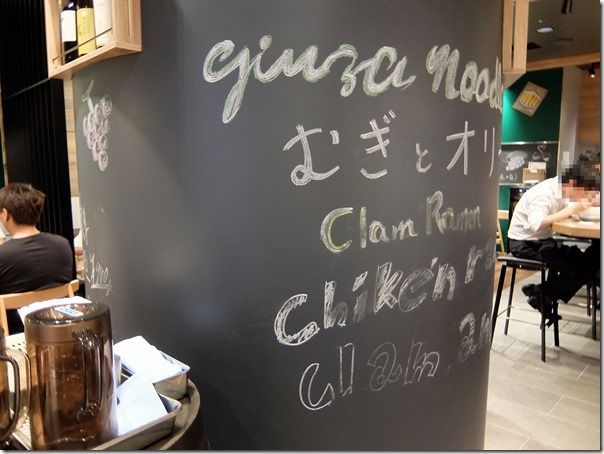 ginza nood
むぎとオリ
Clam Ramen
chiken r
clam an